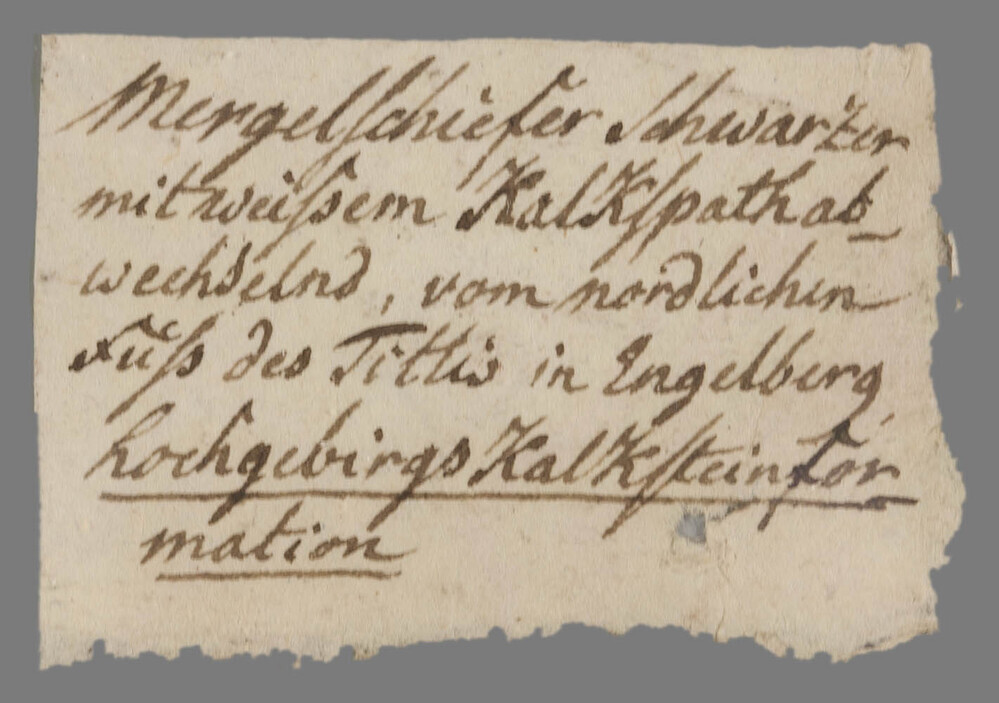 Mergelschiefer Schwarzer
mit weissem Kalkspath ab-
wechselnd, vom nordlichen
Fuss des Titlis in Engelberg,
hochgebirgs Kalksteinfor
mation